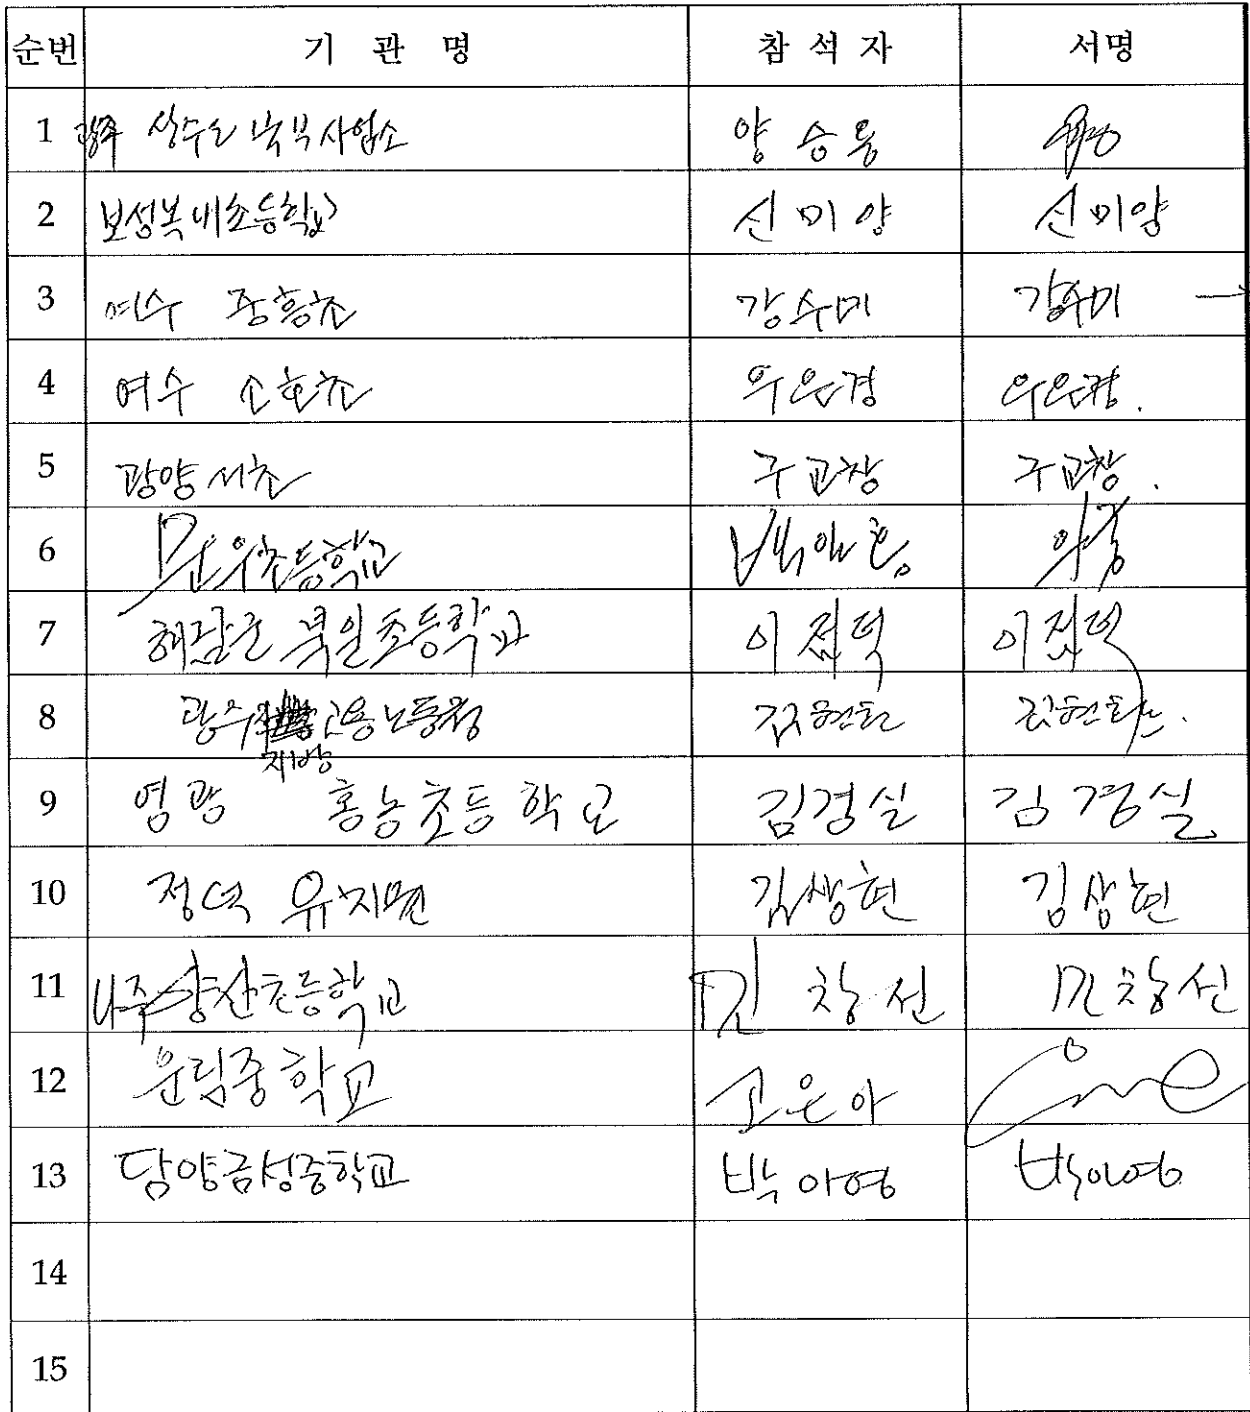 순번 기 관 명 참 석 자 서명
1 광주 상수도 북부사업소 양승용
2 보성복내초등학교 신미양 신미양
3 여수 중흥초 강수미 강수미
4 여수 소호초 우은경 우은경.
5 광양서초 구교창 구교창.
6 초등학교
7 해남군 북일초등학교 이점덕 이점덕
8 광주 고용노동청
지방
9 영광 홍농초등학교 김경실 김경실
10 정덕 유치원 김상현 김상현
11 나주양산초등학교 민창선 민창선
12 운림중학교 고은아
13 담양금성중학교 박아영 박아영
14
15